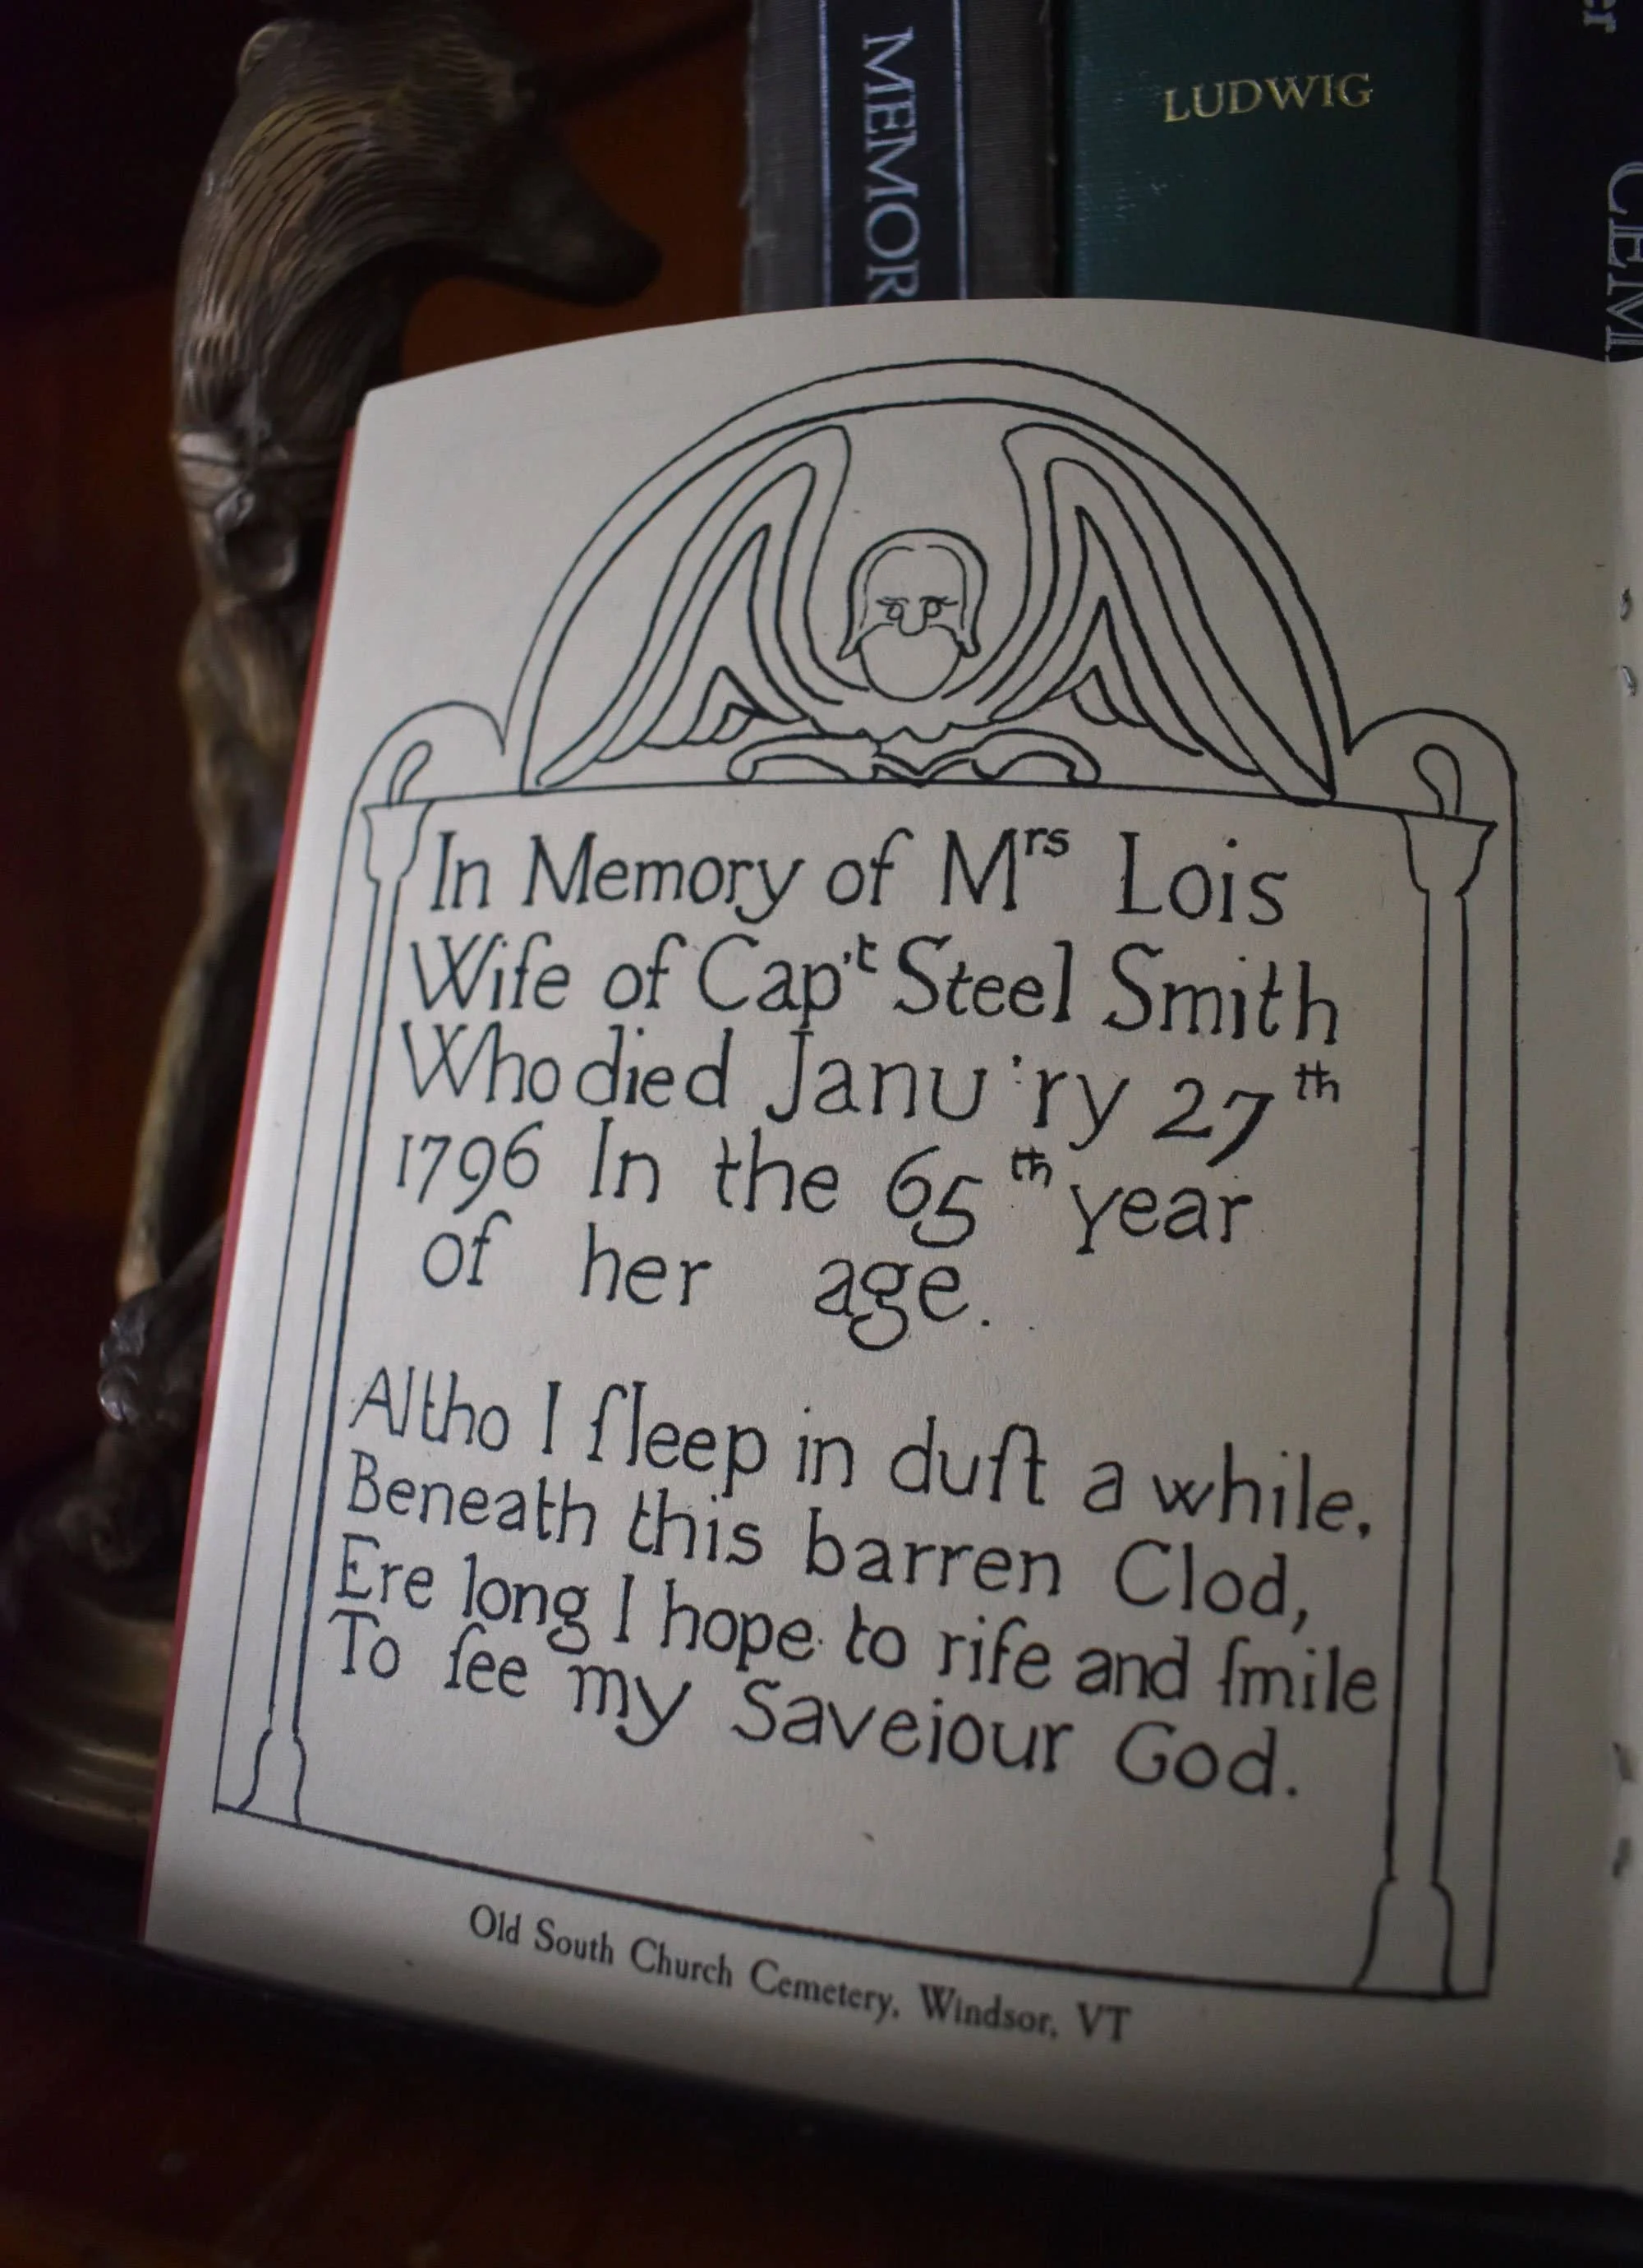 MEMOR
LUDWIG
CEM
In Memory of Mrs Lois
Wife of Cap't Steel Smith
Who died Janu'ry 27th
1796 In the 65th year
of her age.
Altho I ſleep in duſt a while,
Beneath this barren Clod,
Ere long I hope to riſe and ſmile
To ſee my Saveiour God.
Old South Church Cemetery, Windsor, VT